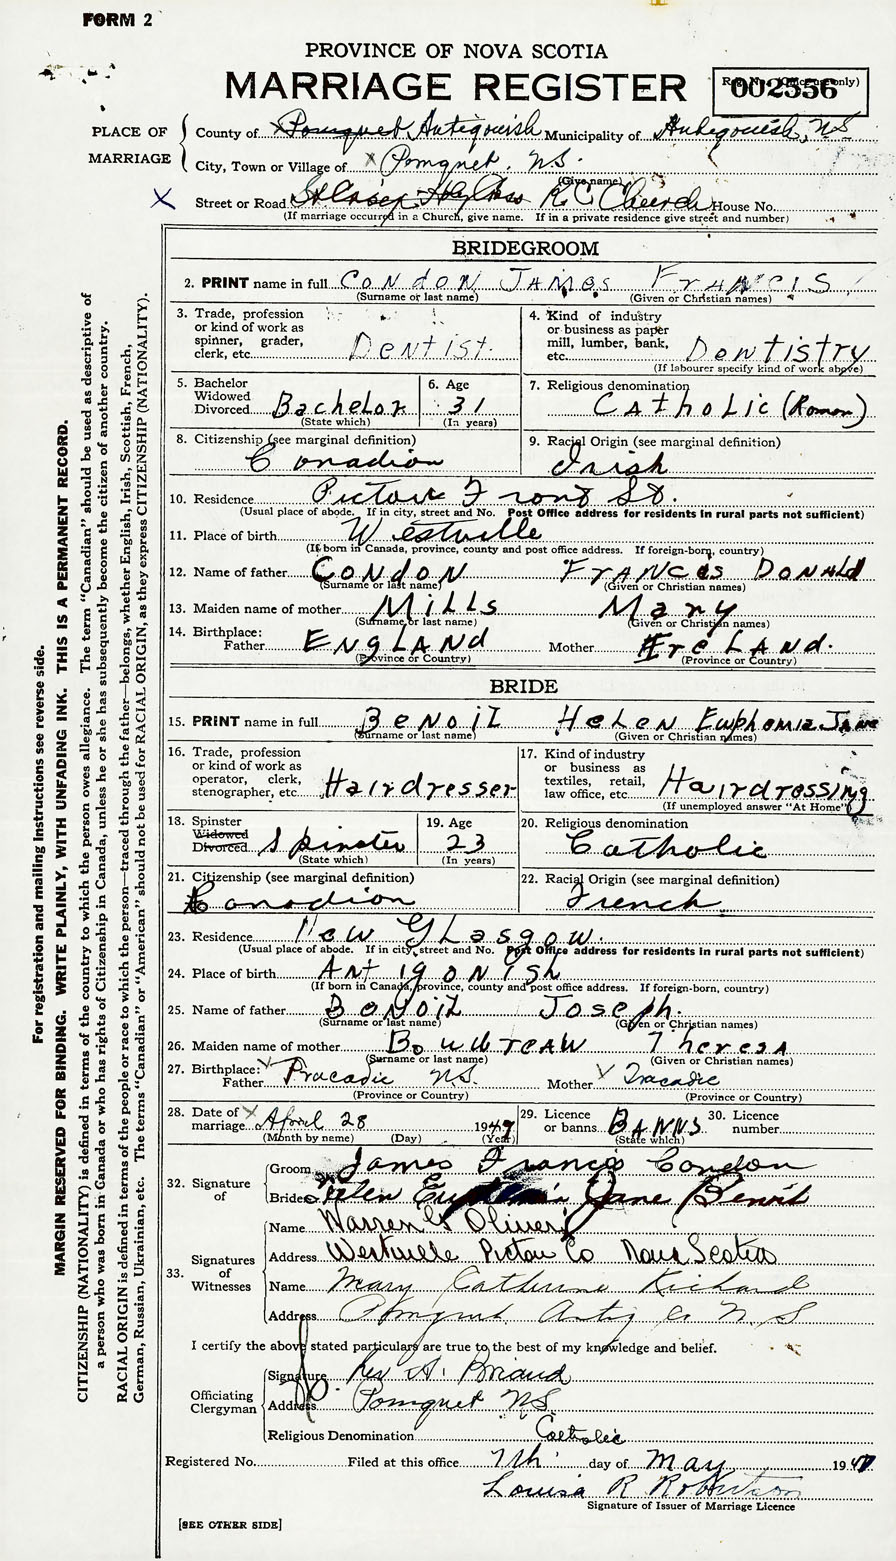 FORM 2
PROVINCE OF NOVA SCOTIA
MARRIAGE REGISTER
Reg. No. (Office use only)
002556
PLACE OF MARRIAGE
County of Pomquet Antigonish Municipality of Antigonish, NS
City, Town or Village of X Pomquet. NS.
(Give name)
X Street or Road Holy Cross R C Church House No.
(If marriage occurred in a Church, give name. If in a private residence give street and number)
BRIDEGROOM
2. PRINT name in full CONDON JAMES FRANCIS
(Surname or last name) (Given or Christian names)
3. Trade, profession or kind of work as spinner, grader, clerk, etc. Dentist.
4. Kind of industry or business as paper mill, lumber, bank, etc. Dentistry
(If labourer specify kind of work above)
5. Bachelor Widowed Divorced Bachelor
(State which)
6. Age 31
(In years)
7. Religious denomination CATHOLIC (Roman)
8. Citizenship (see marginal definition) Canadian
9. Racial Origin (see marginal definition) Irish
10. Residence Pictou Front St.
(Usual place of abode. If in city, street and No. Post Office address for residents in rural parts not sufficient)
11. Place of birth Westville
(If born in Canada, province, county and post office address. If foreign-born, country)
12. Name of father CONDON FRANCIS DONALD
(Surname or last name) (Given or Christian names)
13. Maiden name of mother Mills Mary
(Surname or last name) (Given or Christian names)
14. Birthplace: Father ENGLAND Mother IreLAND.
(Province or Country) (Province or Country)
BRIDE
15. PRINT name in full BENOIT HELEN EUPHEMIA JANE
(Surname or last name) (Given or Christian names)
16. Trade, profession or kind of work as operator, clerk, stenographer, etc. Hairdresser
17. Kind of industry or business as textiles, retail, law office, etc. Hairdressing
(If unemployed answer "At Home")
18. Spinster Widowed Divorced Spinster
(State which)
19. Age 23
(In years)
20. Religious denomination Catholic
21. Citizenship (see marginal definition) Canadian
22. Racial Origin (see marginal definition) French
23. Residence New Glasgow.
(Usual place of abode. If in city, street and No. Post Office address for residents in rural parts not sufficient)
24. Place of birth ANTIGONISH
(If born in Canada, province, county and post office address. If foreign-born, country)
25. Name of father BENOIT JOSEPH.
(Surname or last name) (Given or Christian names)
26. Maiden name of mother BOUDREAU THERESA
(Surname or last name) (Given or Christian names)
27. Birthplace: Father Tracadie NS. Mother Tracadie
(Province or Country) (Province or Country)
28. Date of marriage X April 28 1947
(Month by name) (Day) (Year)
29. Licence or banns BANNS
(State which)
30. Licence number
32. Signature of
Groom James Francis Condon
Bride Helen Jane Benoit
33. Signatures of Witnesses
Name Warren G Oliver
Address Westville Pictou Co Nova Scotia
Name Mary Catherine
Address Pomquet Antig Co N. S
I certify the above stated particulars are true to the best of my knowledge and belief.
Officiating Clergyman
Signature Rev A. Briand
Address Pomquet NS
Religious Denomination Catholic
Registered No. Filed at this office 7th day of May 1947
Louisa R Robertson
Signature of Issuer of Marriage Licence
[SEE OTHER SIDE]
For registration and mailing instructions see reverse side.
MARGIN RESERVED FOR BINDING. WRITE PLAINLY, WITH UNFADING INK. THIS IS A PERMANENT RECORD.
CITIZENSHIP (NATIONALITY) is defined in terms of the country to which the person owes allegiance. The term "Canadian" should be used as descriptive of
a person who was born in Canada or who has rights of Citizenship in Canada, unless he or she has subsequently become the citizen of another country.
RACIAL ORIGIN is defined in terms of the people or race to which the person—traced through the father—belongs, whether English, Irish, Scottish, French,
German, Russian, Ukrainian, etc. The terms "Canadian" or "American" should not be used for RACIAL ORIGIN, as they express CITIZENSHIP (NATIONALITY).